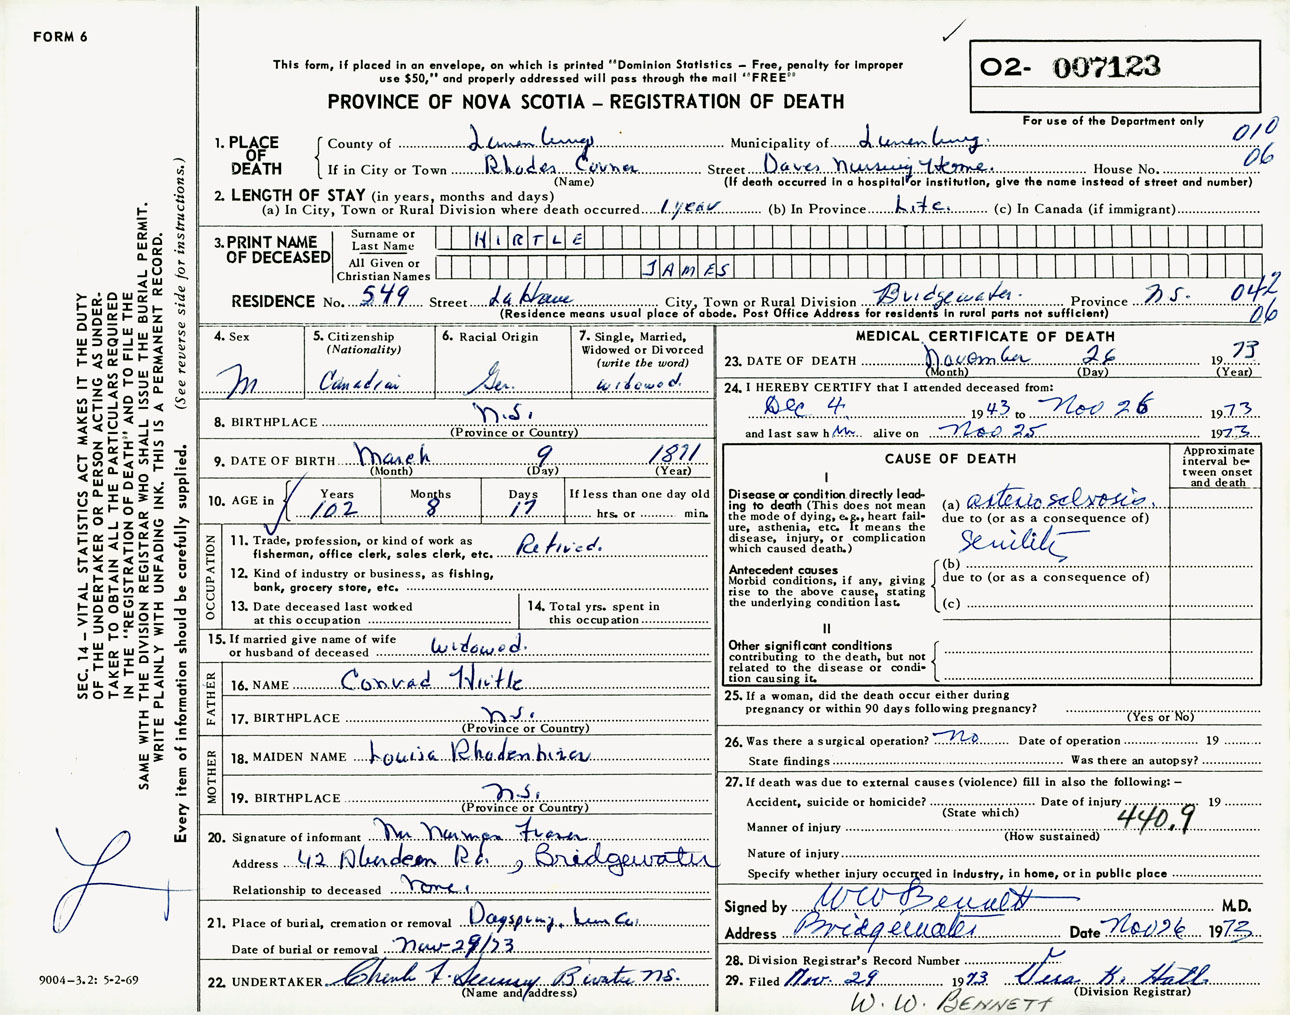 FORM 6
This form, if placed in an envelope, on which is printed "Dominion Statistics – Free, penalty for improper
use $50," and properly addressed will pass through the mail "FREE"
O2- 007123
PROVINCE OF NOVA SCOTIA – REGISTRATION OF DEATH
For use of the Department only
010
06
1. PLACE OF DEATH
County of Lunenburg Municipality of Lunenburg.
If in City or Town Rhodes Corner Street Daves Nursing Home. House No.
(Name) (If death occurred in a hospital or institution, give the name instead of street and number)
2. LENGTH OF STAY (in years, months and days)
(a) In City, Town or Rural Division where death occurred 1 year (b) In Province Life. (c) In Canada (if immigrant)
3. PRINT NAME OF DECEASED
Surname or Last Name HIRTLE
All Given or Christian Names JAMES
RESIDENCE No. 549 Street LaHave City, Town or Rural Division Bridgewater. Province NS. 042
(Residence means usual place of abode. Post Office Address for residents in rural parts not sufficient) 06
4. Sex M
5. Citizenship (Nationality) Canadian
6. Racial Origin Ger.
7. Single, Married, Widowed or Divorced (write the word) widowed.
8. BIRTHPLACE N.S.
(Province or Country)
9. DATE OF BIRTH March 9 1871
(Month) (Day) (Year)
10. AGE in Years 102 Months 8 Days 17 If less than one day old hrs. or min.
OCCUPATION
11. Trade, profession, or kind of work as
fisherman, office clerk, sales clerk, etc. Retired.
12. Kind of industry or business, as fishing,
bank, grocery store, etc.
13. Date deceased last worked
at this occupation
14. Total yrs. spent in
this occupation
15. If married give name of wife
or husband of deceased widowed.
FATHER
16. NAME Conrad Hirtle
17. BIRTHPLACE N.S.
(Province or Country)
MOTHER
18. MAIDEN NAME Louisa Rhodenhizer
19. BIRTHPLACE N.S.
(Province or Country)
20. Signature of informant Mr Norman Fraser
Address 42 Aberdeen Rd., Bridgewater
Relationship to deceased None.
21. Place of burial, cremation or removal Dayspring, Lun Co.
Date of burial or removal Nov 29/73
22. UNDERTAKER B'water NS.
(Name and address)
MEDICAL CERTIFICATE OF DEATH
23. DATE OF DEATH November 26 1973
(Month) (Day) (Year)
24. I HEREBY CERTIFY that I attended deceased from:
Dec 4 1943 to Nov 26 1973
and last saw h im alive on Nov 25 1973
CAUSE OF DEATH
Approximate interval between onset and death
I
Disease or condition directly leading to death (This does not mean
the mode of dying, e.g., heart failure, asthenia, etc. It means the
disease, injury, or complication
which caused death.)
(a) arteriosclrosis.
due to (or as a consequence of)
Senility
Antecedent causes
Morbid conditions, if any, giving
rise to the above cause, stating
the underlying condition last.
(b)
due to (or as a consequence of)
(c)
II
Other significant conditions
contributing to the death, but not
related to the disease or condition causing it.
25. If a woman, did the death occur either during
pregnancy or within 90 days following pregnancy?
(Yes or No)
26. Was there a surgical operation? No Date of operation 19
State findings Was there an autopsy?
27. If death was due to external causes (violence) fill in also the following: –
Accident, suicide or homicide? Date of injury 19
(State which)
Manner of injury 440.9
(How sustained)
Nature of injury
Specify whether injury occurred in industry, in home, or in public place
Signed by WW Bennett M.D.
Address Bridgewater Date Nov 26 1973
28. Division Registrar's Record Number
29. Filed Nov. 29 1973 Vera K. Hall
(Division Registrar)
W. W. BENNETT
SEC. 14 – VITAL STATISTICS ACT MAKES IT THE DUTY
OF THE UNDERTAKER OR PERSON ACTING AS UNDER-
TAKER TO OBTAIN ALL THE PARTICULARS REQUIRED
IN THE "REGISTRATION OF DEATH" AND TO FILE THE
SAME WITH THE DIVISION REGISTRAR WHO SHALL ISSUE THE BURIAL PERMIT.
WRITE PLAINLY WITH UNFADING INK. THIS IS A PERMANENT RECORD.
Every item of information should be carefully supplied. (See reverse side for instructions.)
9004-3.2: 5-2-69